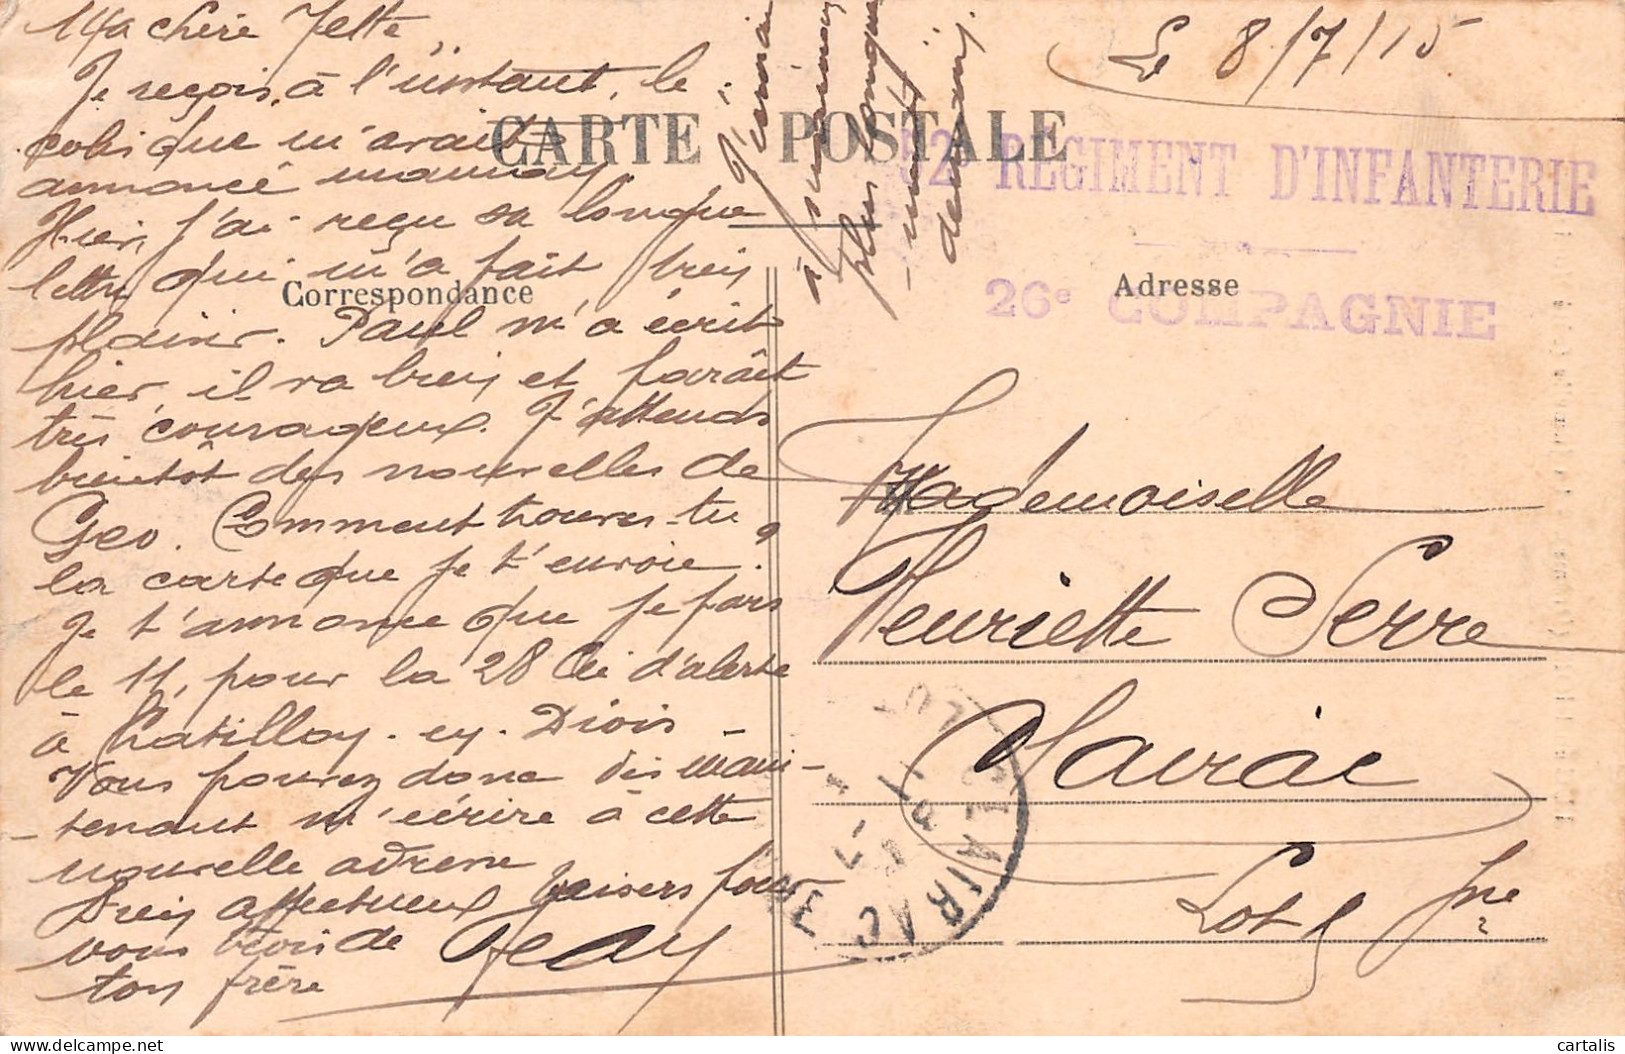 Ma chère Jette,
Je reçois, à l'instant, le
colis que m'avait
annoncé maman
Hier, j'ai reçu sa longue
lettre qui m'a fait bien
plaisir. Paul m'a écrit
hier, il va bien et paraît
très courageux. J'attends
bientôt des nouvelles de
Geo. Comment trouves-tu
la carte que je t'envoie ?
Je t'annonce que je pars
le 11, pour la 28 Cie d'alerte
à Chatillon-en-Diois-
Vous pouvez donc dès main-
-tenant m'écrire à cette
nouvelle adresse
Bien affectueux baisers pour
vous trois de Jean
ton frère
J'écrirai
à maman
plus longue-
-ment
demain.
CARTE POSTALE
Correspondance
Adresse
Le 8/7/15
52 RÉGIMENT D'INFANTERIE
26e COMPAGNIE
Mademoiselle
Henriette Serre
Clairac
Lot & Gne
CLAIRAC